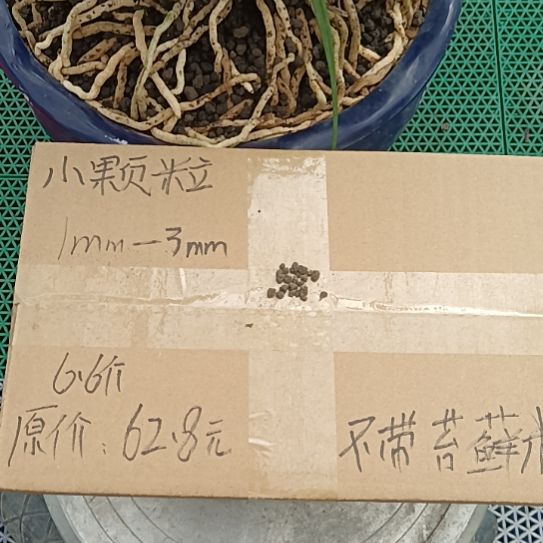 小颗粒
1mm—3mm
6.6斤
原价:62.8元
不带苔藓